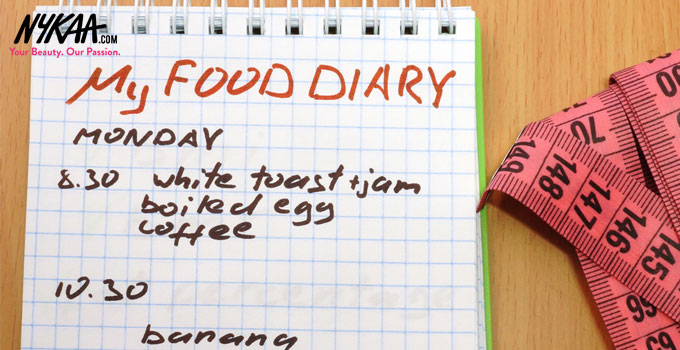 NYKAA.COM
Your Beauty. Our Passion.
My FOOD DIARY
MONDAY
8.30 white toast+jam
boiled egg
coffee
10.30
banana
149
148
147
146
145
70
66
65
100